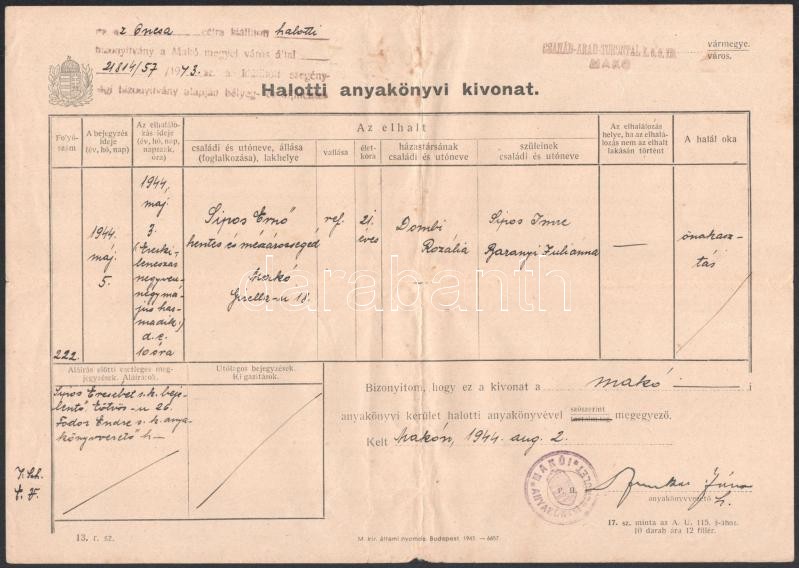 ez az Oncsa célra kiállított halotti
bizonyítvány a Makó megyei város által
21814/57/1943. sz. a. kiállított szegény-
ségi bizonyítvány alapján bélyeg
CSANÁD-ARAD-TORONTÁL K. E. E. VM.
MAKÓ
vármegye.
város.
Halotti anyakönyvi kivonat.
Folyó-szám
A bejegyzés ideje (év, hó, nap)
Az elhalálozás ideje (év, hó, nap, napszak, óra)
Az elhalt
családi és utóneve, állása (foglalkozása), lakhelye
vallása
életkora
házastársának családi és utóneve
szüleinek családi és utóneve
Az elhalálozás helye, ha az elhalálozás nem az elhalt lakásán történt
A halál oka
222.
1944. máj. 5.
1944, maj 3. (Ezerkilencszáz negyvennégy május harmadik:) d.e. 10 óra
Sipos Ernő
hentes és mészárossegéd
Makó
Gizella-u 18.
ref.
21 éves
Dombi
Rozália
Sipos Imre
Baranyi Julianna
—
önakasz-
tás
Aláírás előtti esetleges meg-
jegyzések. Aláírások.
Utólagos bejegyzések.
Kiigazítások.
Sipos Erzsébet s.k. beje-
lentő, Eötvös-u 26.
Fodor Endre s.k. anya-
könyvvezető h—
Bizonyítom, hogy ez a kivonat a makó i
anyakönyvi kerület halotti anyakönyvével szószerint megegyező.
tartalmilag
Kelt Makón, 1944. aug. 2.
MAKÓI
P. H.
anyakönyvvezető
h.
13. r. sz.
M. kir. állami nyomda, Budapest, 1943. — 6657.
17. sz. minta az A. U. 115. §-ához.
10 darab ára 12 fillér.
darabanth